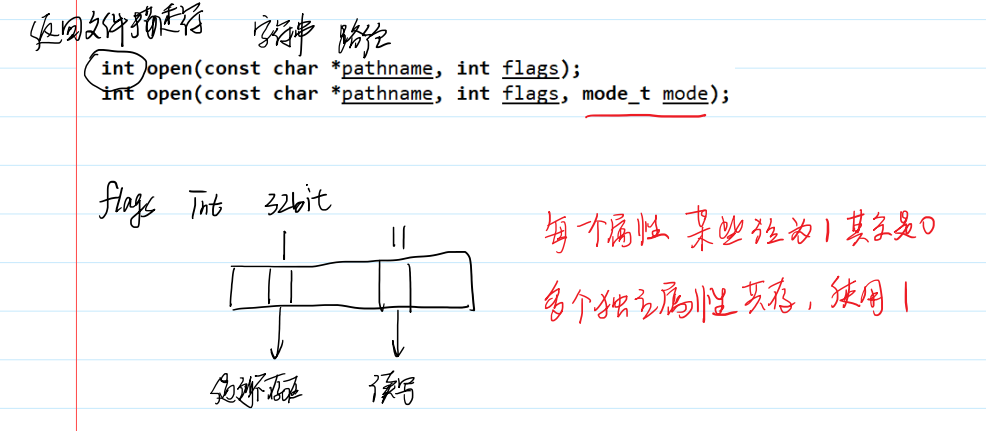 返回文件描述符 字符串 路径
int open(const char *pathname, int flags);
int open(const char *pathname, int flags, mode_t mode);
flags int 32bit
1 11
每个属性 某些位为1其它是0
多个独立属性共存，使用 |
不存在 读写